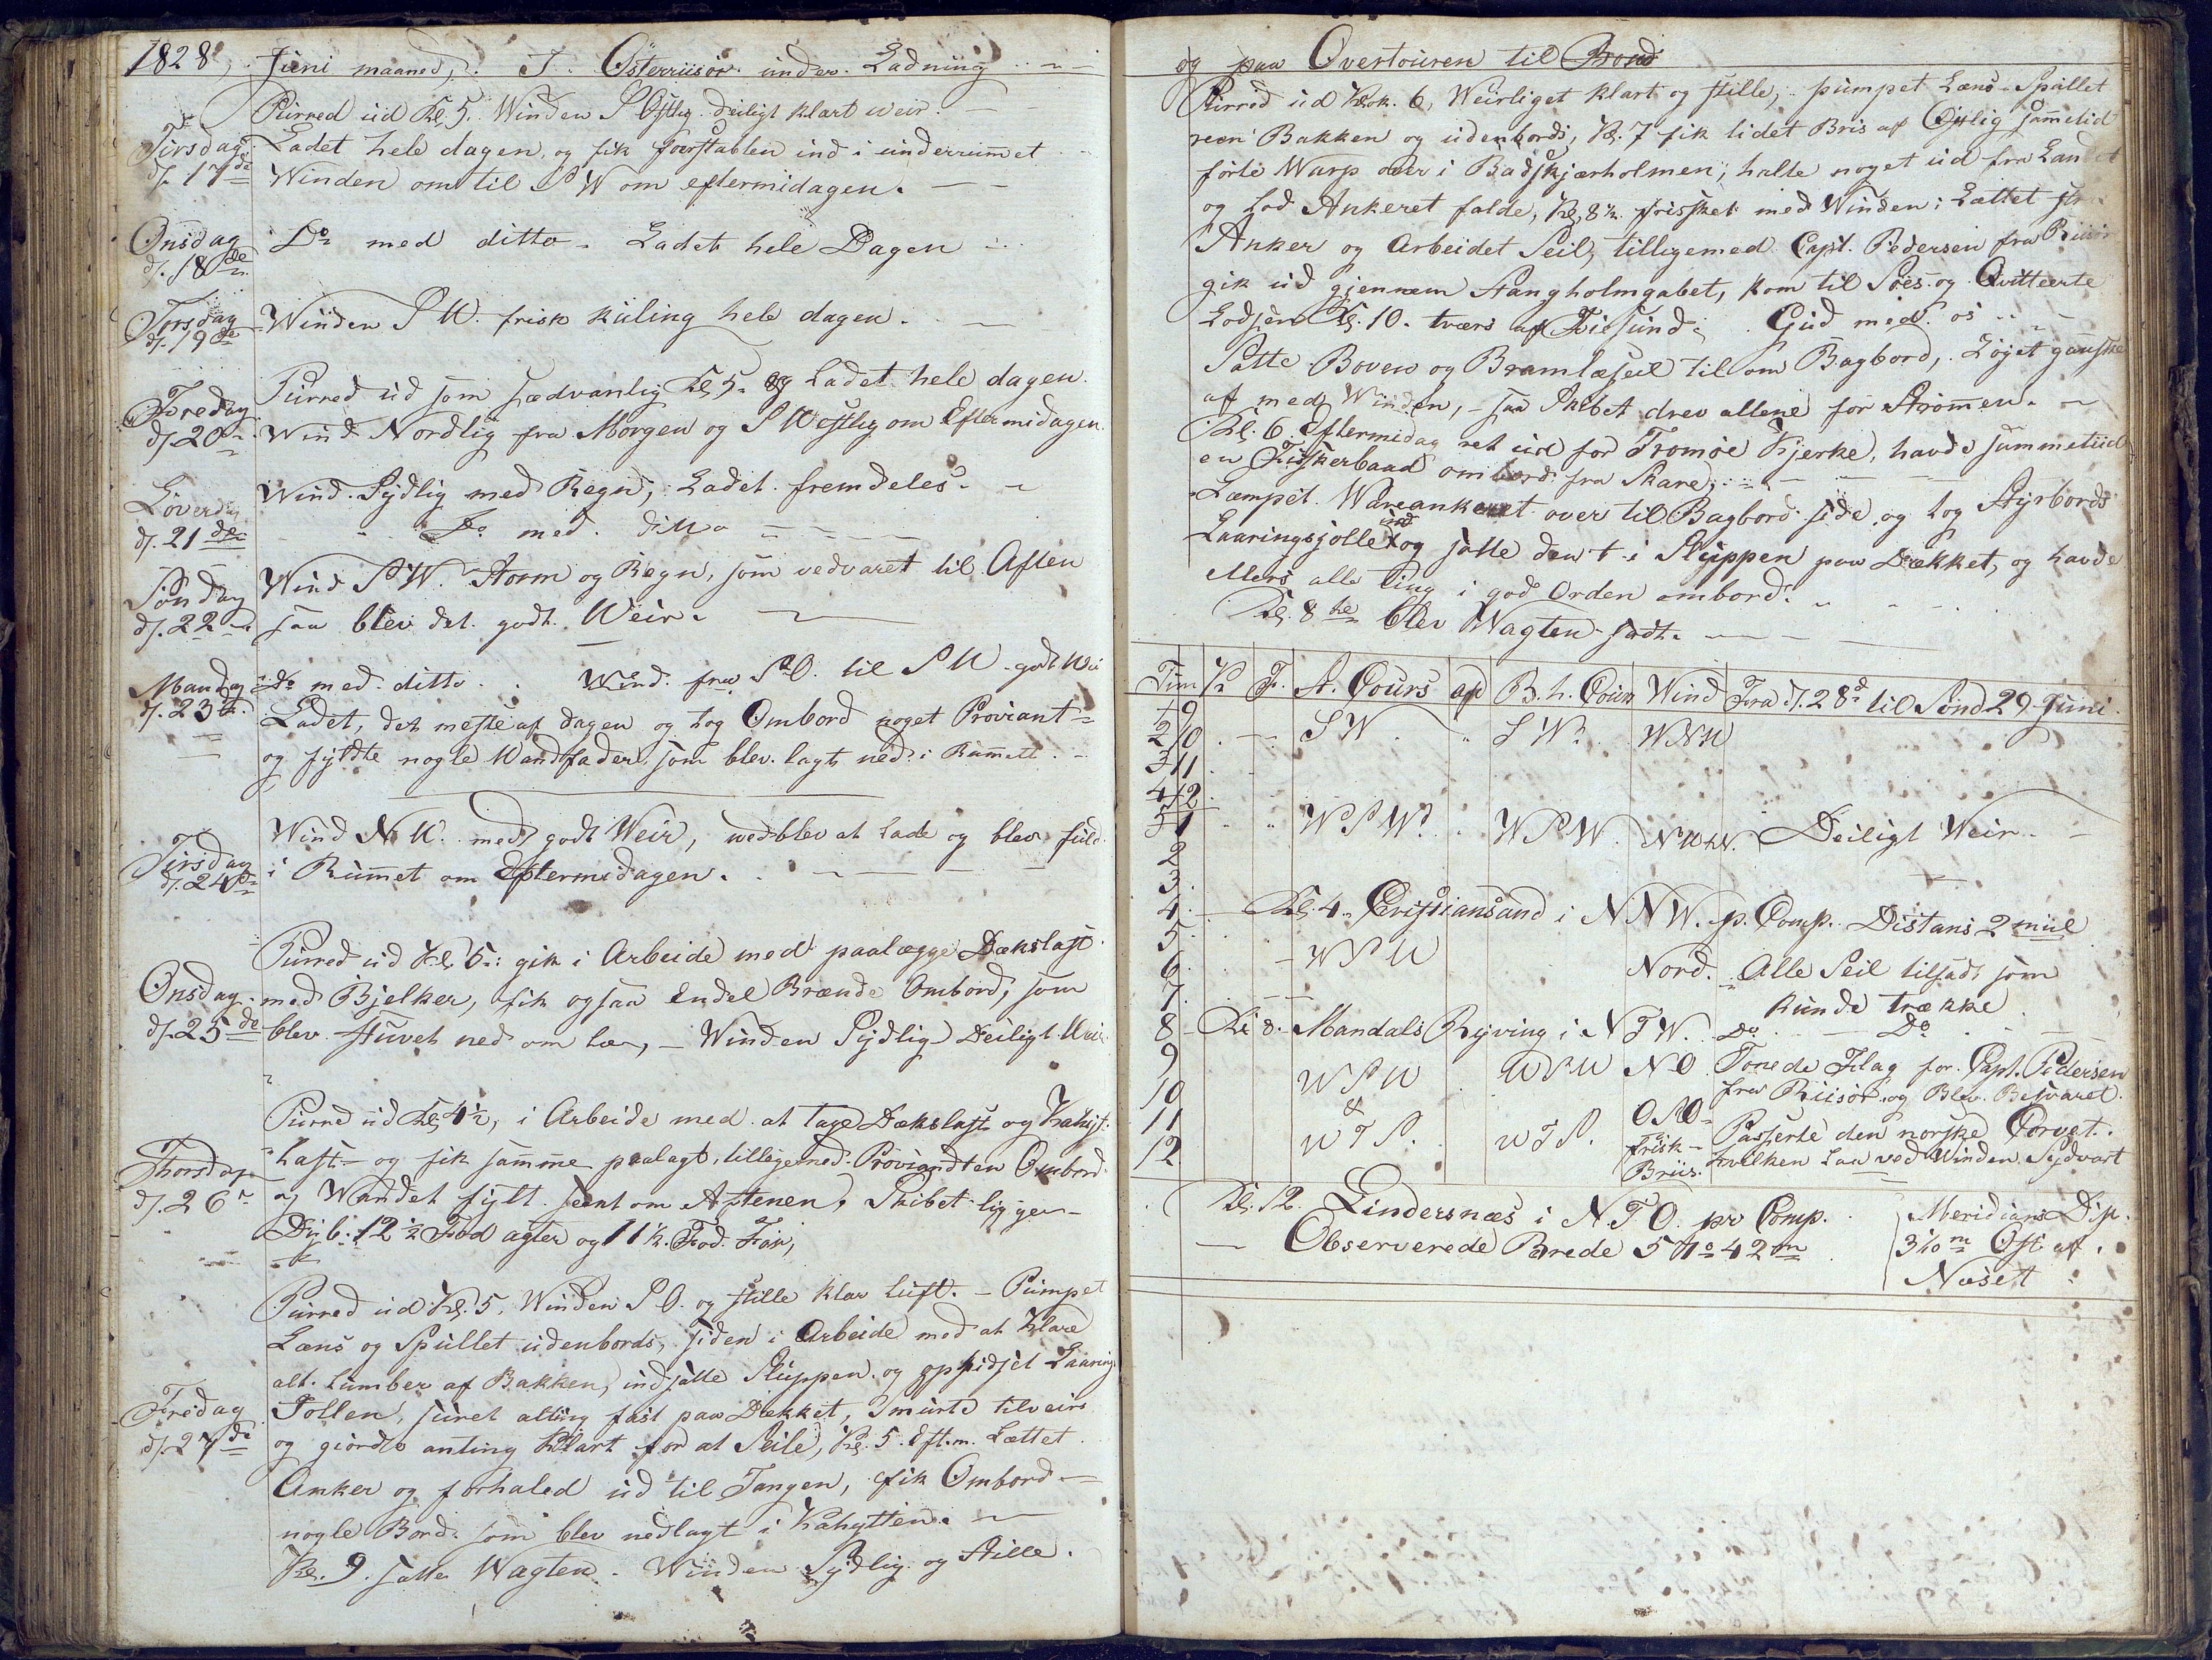 1828, Juni maaned, I Österriisör under Ladning
Purred ud Kl. 5. Winden S Ostlig deiligt klart veir.
Tirsdag Ladet hele dagen, og fik foerstablen ind i underrummet
d. 17de Winden om til SW om eftermidagen.
Onsdag Do med ditto. Ladet hele Dagen
d. 18de
Torsdag Winden SW. frisk kuling hele dagen.
d. 19de
Purred ud som sædvanlig Kl. 5. og Ladet hele dagen.
Fredag
d. 20 Wind Nordlig fra Morgen og S Westlig om Eftermidagen.
Löverdag Wind Sydlig med Regn, Ladet fremdeles.
d. 21de Do med ditto
Söndag Wind SW. Storm og Regn, som vedvaret til Aften
d. 22 saa blev det godt Weir.
Mandag Do med ditto. Wind fra SO. til SW godt Wei
d. 23d. Ladet, det meste af dagen og tog Ombord noget Proviant
og fyldte nogle Wandfader som blev lagt ned i Rummet.
Wind NW. med godt Weir, wedblev at Lade og blev fuld
Tirsdag
d. 24 i Rummet om Eftermidagen.
Purred ud Kl. 5. gik i Arbeide med paalægge Dækslast
Onsdag med Bjelker, fik ogsaa Endel Brænde Ombord, som
d. 25de blev stuvet ned om Læ, Winden Sydlig Deiligt Wei
Purred ud Kl. 4½, i Arbeide med at tage Dækslast og Kahyt
Thorsdag Last og fik samme paalagt, tilligemed Proviandten Ombord
d. 26 og Wandet fylt seent om Aftenen, Skibet ligger
Dyb. 12½ Fod agter og 11½ Fod For,
Purred ud Kl. 5. Winden SO. og stille klar luft. Pumpet
Læns og Spullet udenbords, siden i Arbeide med at klare
alt Lumber af Bakken, indsatte Sluppen og ophidset Laaring
Fredag Jollen, suret alting fast paa Dækket, Smurte tilveirs
d. 27de og giorde anting klart for at Seile, Kl. 5. Eft.m. Lættet
Anker og forhaled ud til Tangen, fik Ombord
nogle Bord som blev nedlagt i Kahytten.
Kl. 9. satte Wagten. Winden Sydlig og Stille.
og paa Overtouren til
Purred ud Klok. 6, Weirliget klart og stille, pumpet Læns Spullet
reen Bakken og udenbords, Kl. 7 fik lidet Bris af Ostlig sametid
förte Warp over i Badskjærholmen, halte noget ud fra Landet
og Lod Ankeret falde, Kl. 8½ frisket med Winden: Lættet
Anker og Arbeidet Seil, tilligemed Capt. Pedersen fra Riisör
gik ud gjennem Stangholmgabet, kom til Söes og Qvitteerte
Lodsen Kl. 10. tværs af . Gud med os
Satte Boven og Bramlæseil til om Bagbord, Löjet ganske
af med Winden, saa Skibet drev allene for Strömen.
Kl. 6 Eftermidag ret ud for Tromöe Kjerke, havde sammetiid
en Fiskerbaad ombord fra Skare,
Lempet Wareankeret over til Bagbord side, og tog Styrbords
Laaringsjolle ind og satte den i Sluppen paa Dækket, og havde
Ellers alle ting i god Orden ombord.
Kl. 8te blev Wagten sadt.
Tim K F. St. Cours af B. h. Cours Wind Fra d. 28d til Sönd 29 Juni
1 9
2 10 SW SW. WNW
3 11
4 12
5 1 WSW. WSW. NWtW. Deiligt Weir.
2
3
4 Kl. 4. Cristiansand i NNW. p. Comp. Distans 2 miil
5 WSW
6 Nord. Alle Seil tilsadt som
7 kunde trække
8 Kl. 8. Mandals Ryving i NTW. Do Do
9 WSW WSW NO Tonede Flag for Capt. Pedersen
10 & fra Riisör, og Blev Besvaret.
11 WTS. WTS. OSO Passerte den norske Corvet.
12 frisk Briis. hvilken Laa ved Winden Sydvart
Kl. 12. Lindersnæs i N.TO. pr Comp. Meridians Dif.
Observerede Brede 57° 42m 3 1/10 m Ost af
Næset